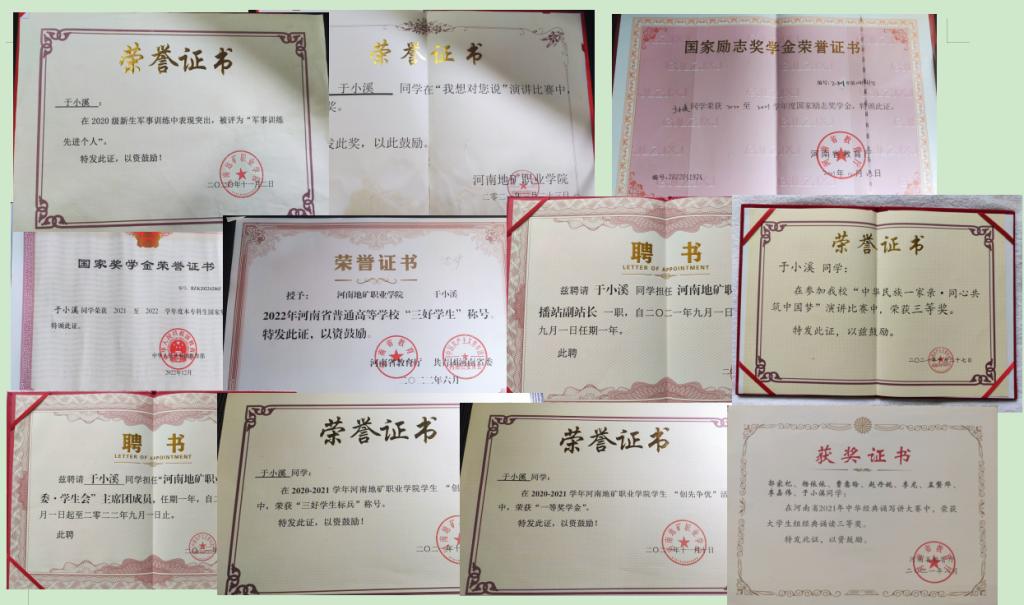 荣誉证书
于小溪 :
在2020级新生军事训练中表现突出，被评为“军事训练
先进个人”。
特发此证，以资鼓励！
二〇二〇年十一月二日
荣誉证书
于小溪 同学在“我想对您说”演讲比赛中，
奖。
发此奖，以此鼓励。
河南地矿职业学院
国家励志奖学金荣誉证书
同学荣获 至 学年度国家励志奖学金。特颁此证。
河南省教育厅
国家奖学金荣誉证书
于小溪同学荣获 2021 至 2022 学年度本专科生国家
特颁此证。
2022年12月
荣誉证书
授予： 河南地矿职业学院 于小溪
2022年河南省普通高等学校“三好学生”称号。
特发此证，以资鼓励。
河南省教育厅 共青团河南省委
二〇二二年六月
聘 书
LETTER OF APPOINTMENT
兹聘请 于小溪 同学担任 河南地矿职
播站副站长 一职，自二〇二一年九月一日
九月一日任期一年。
此聘
荣誉证书
于小溪 同学：
在参加我校“中华民族一家亲·同心共
筑中国梦”演讲比赛中，荣获三等奖。
特发此证，以兹鼓励。
聘 书
LETTER OF APPOINTMENT
兹聘请 于小溪 同学担任“河南地矿职
委·学生会”主席团成员，任期一年，自二
月一日起至二〇二二年九月一日止。
此聘
荣誉证书
于小溪 同学：
在 2020-2021 学年河南地矿职业学院学生 “创
中，荣获“三好学生标兵”称号。
特发此证，以资鼓励！
荣誉证书
于小溪 同学：
在 2020-2021 学年河南地矿职业学院学生 “创先争优” 活
中，荣获“一等奖学金”。
特发此证，以资鼓励！
获奖证书
李嘉伟、于小溪同学：
在河南省2021年中华经典诵写讲大赛中，荣获
大学生组经典诵读三等奖。
特发此证，以资鼓励。